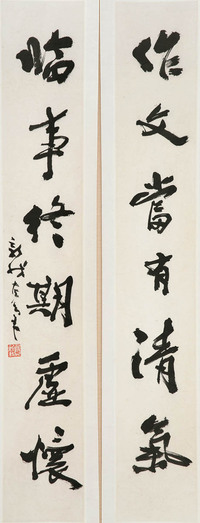 作文當有清氣
臨事終期虛懷